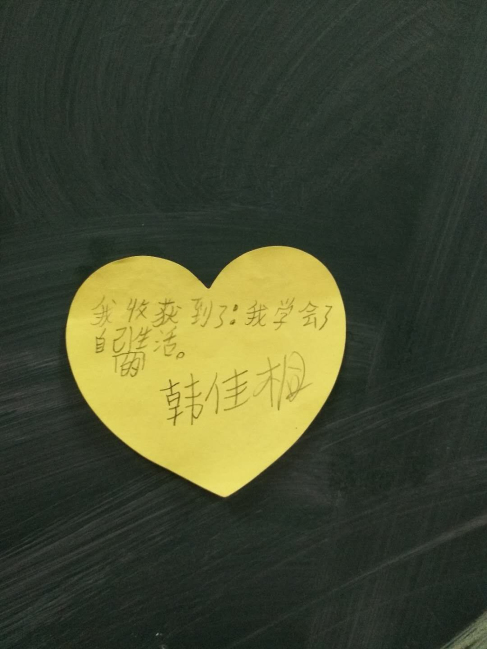 我收获到了:我学会了
自己的生活。
韩佳相